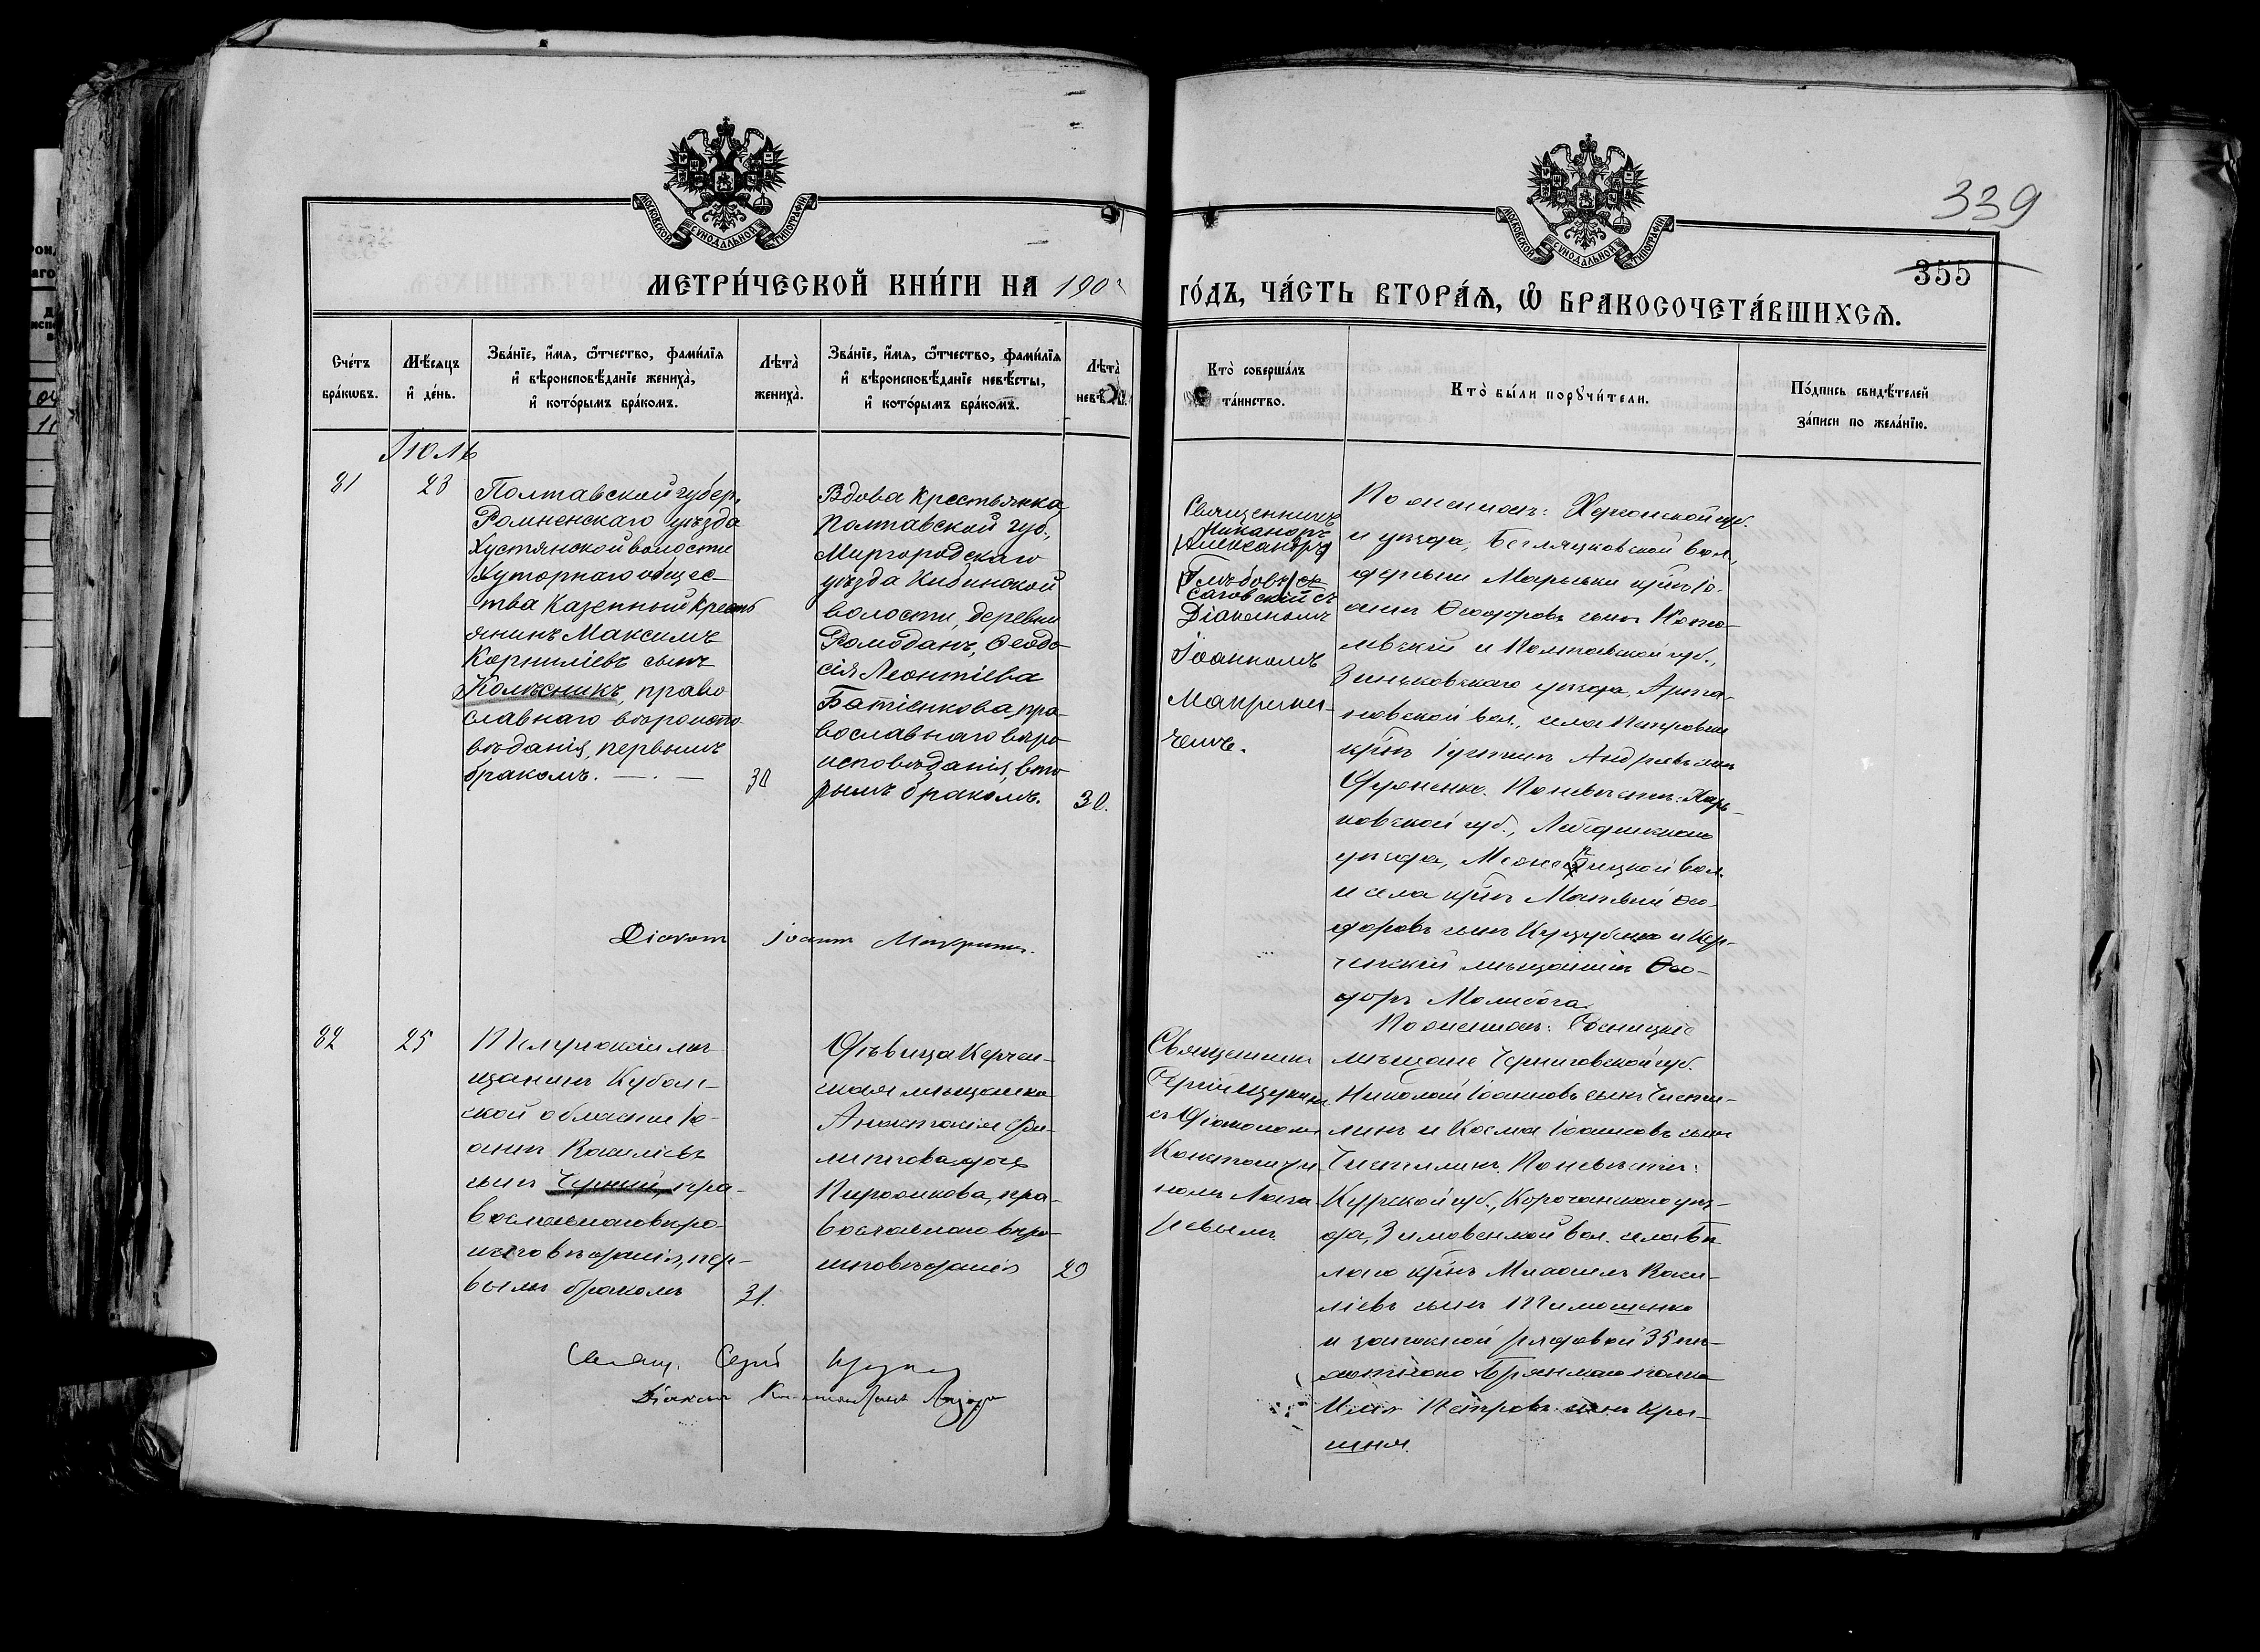 339
355
МОСКОВСКОЙ СѴНОДАЛЬНОЙ ТИПОГРАФІИ
МОСКОВСКОЙ СѴНОДАЛЬНОЙ ТИПОГРАФІИ
МЕТРИ́ЧЕСКОЙ КНИ́ГИ НА 190
ГО́ДЪ, ЧА́СТЬ ВТОРА́Ѧ, Ѽ БРАКОСОЧЕТА́ВШИХСѦ.
Сче́тъ бра́кѡвъ.
Мѣ́сяцъ и҆ де́нь.
Зва́нїе, и҆́мя, ѻ҆́тчество, фами́лїя и҆ вѣроисповѣ́данїе жениха̀, и҆ кото́рымъ бра́комъ.
Лѣта̀ жениха̀.
Зва́нїе, и҆́мя, ѻ҆́тчество, фами́лїя и҆ вѣроисповѣ́данїе невѣ́сты, и҆ кото́рымъ бра́комъ.
Лѣта̀
Кто̀ соверша́лъ та́инство.
Кто̀ бы́ли порꙋчи́тели.
По́дпись свидѣ́телей за́писи по жела́нїю.
Іюль
81
23
Полтавской губер.
Роменскаго уѣзда
Хустянской волости
Хуторнаго общес-
тва казенный кресть
янинъ Максимъ
Корниліевъ сынъ
Колѣсникъ, право
славнаго вѣроиспо
вѣданія, первымъ
бракомъ.
30
Вдова крестьянка,
Полтавской губ.,
Миргородскаго
уѣзда Кибинской
волости, деревни
Ромоданъ, Феодо
сія Леонтіева
Батіенкова, пра
вославнаго вѣро
исповѣданія, вто
рымъ бракомъ.
30.
Священникъ
Никаноръ
Александръ
саговскій съ
Діакономъ
Іоанномъ
Макрини-
чемъ.
По женихѣ: Херсонской губ.
и уѣзда, вол.,
деревни Марьевки крнъ Іо-
аннъ Феодоровъ сынъ
и Полтавской губ.,
Зиньковскаго уѣзда,
новской вол., села Петровки
крнъ Іустинъ Андреевъ сынъ
По невѣстѣ: Харь-
ковской губ., Лебединскаго
уѣзда, вол.
и села крнъ Матвѣй Фео-
доровъ сынъ и Кер-
ченскій мѣщанинъ Фео-
доръ Молибога.
Діаконъ Іоаннъ Макринъ.
82
25
Темрюкскій мѣ-
щанинъ Кубан-
ской области Іо-
аннъ Василіевъ
сынъ Черный, пра-
вославнаго вѣро-
исповѣданія, пер-
вымъ бракомъ
31.
Дѣвица Керчен-
ская мѣщанка
Анастасія Фи-
липпова дочь
Пирожкова, пра-
вославнаго вѣро-
исповѣданія
29
Священникъ
Сергій Щукинъ
съ Діакономъ
Константи
номъ Лаза
ревымъ
По женихѣ: Сосницкіе
мѣщане Черниговской губ.
Николай Іоанновъ сынъ
и Косма Іоанновъ сынъ
По невѣстѣ:
Курской губ., Корочанскаго уѣз-
да, Зимовенской вол. села Бѣ
лаго крнъ Михаилъ Васи-
ліевъ сынъ Тимошенко
и запасной рядовой 35 пѣ-
хотнаго Брянскаго полка
Илія Петровъ сынъ
Свящ. Сергій Щукинъ
Діаконъ Константинъ Лазаре